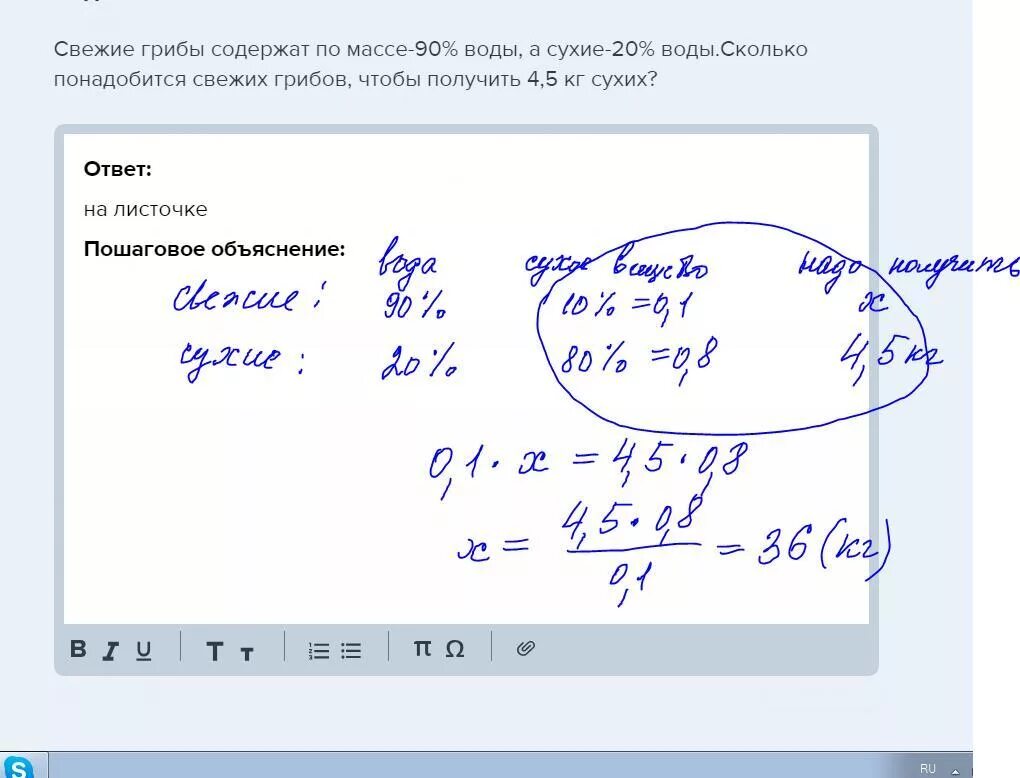 Свежие грибы содержат по массе-90% воды, а сухие-20% воды.Сколько
понадобится свежих грибов, чтобы получить 4,5 кг сухих?
Ответ:
на листочке
Пошаговое объяснение:
вода сухое вещество надо получить
свежие: 90% 10% =0,1 x
сухие: 20% 80% =0,8 4,5 кг
0,1 · x = 4,5 · 0,8
x = 4,5 · 0,8 / 0,1 = 36 (кг)
B I U T т π Ω
RU